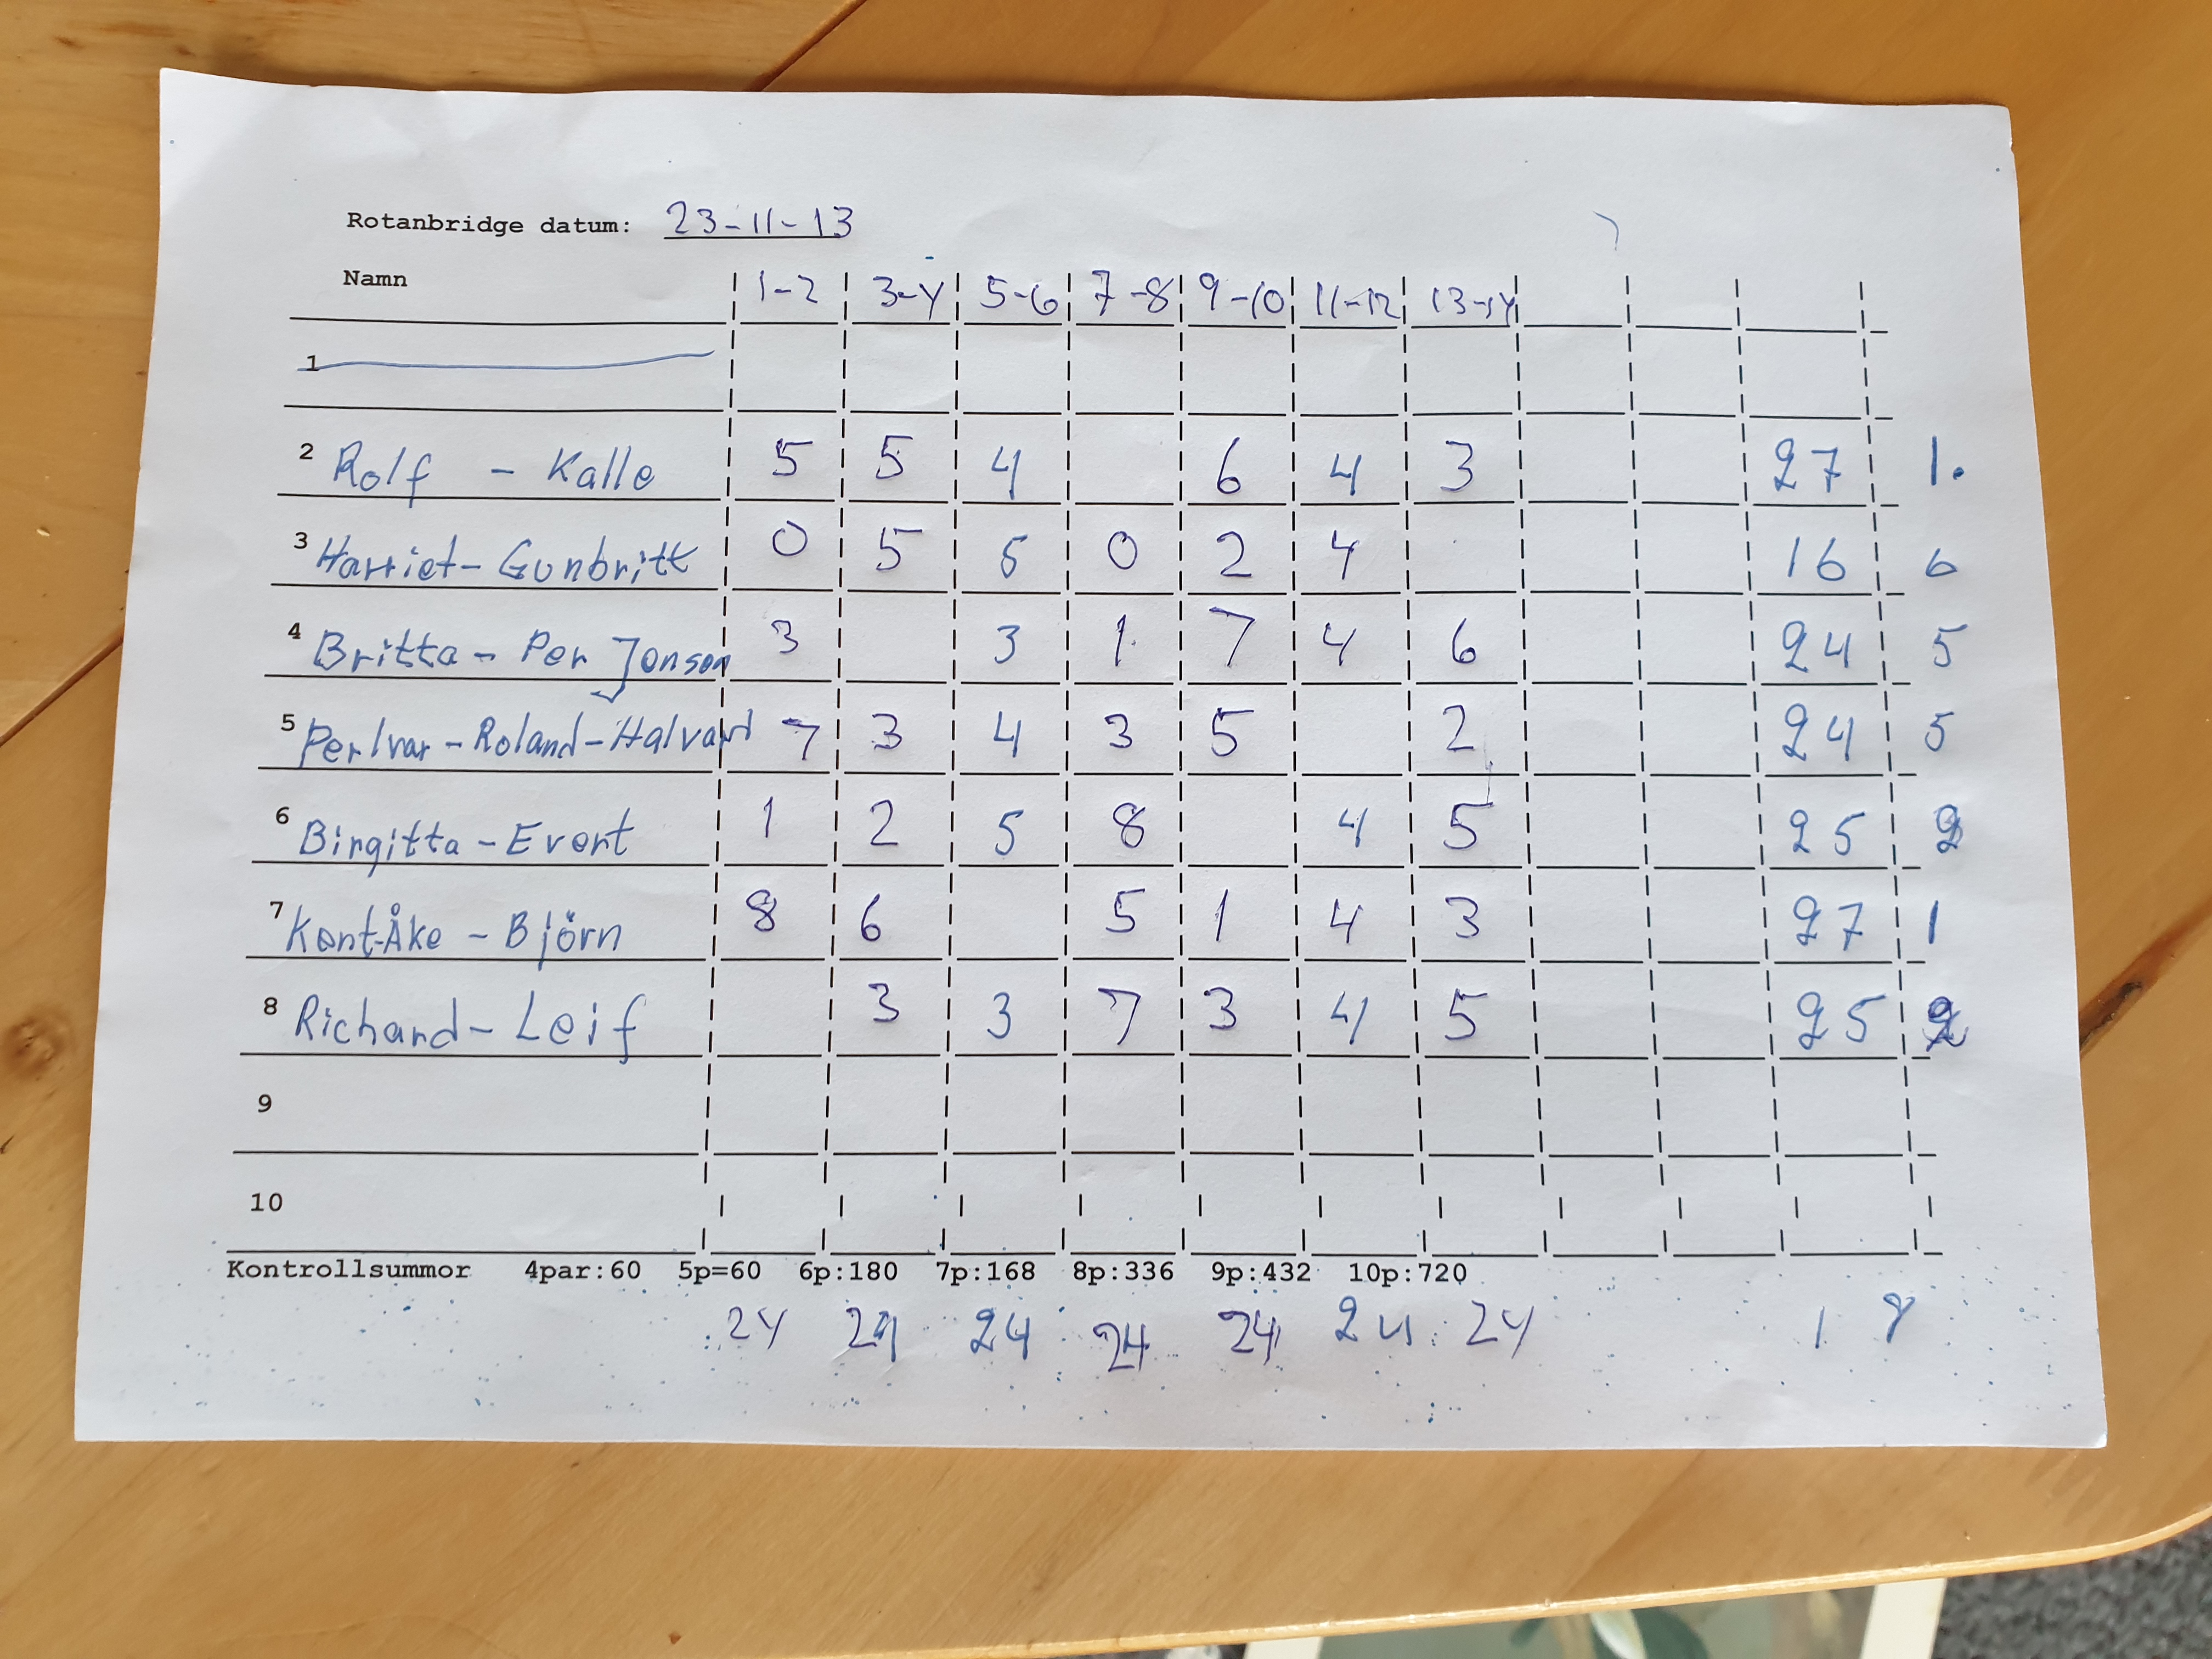 Rotanbridge datum: 23-11-13
Namn 1-2 3-4 5-6 7-8 9-10 11-12 13-14
1
2 Rolf - Kalle 5 5 4 6 4 3 27 1.
3 Harriet - Gunbritt 0 5 5 0 2 4 16 6
4 Britta - Per Jonson 3 3 1 7 4 6 24 5
5 PerIvar - Roland - Halvard 7 3 4 3 5 2 24 5
6 Birgitta - Evert 1 2 5 8 4 5 25
7 Kent-Åke - Björn 8 6 5 1 4 3 27 1
8 Richard - Leif 3 3 7 3 4 5 25
9
10
Kontrollsummor 4par:60 5p=60 6p:180 7p:168 8p:336 9p:432 10p:720
24 24 24 24 24 24 24 1 8